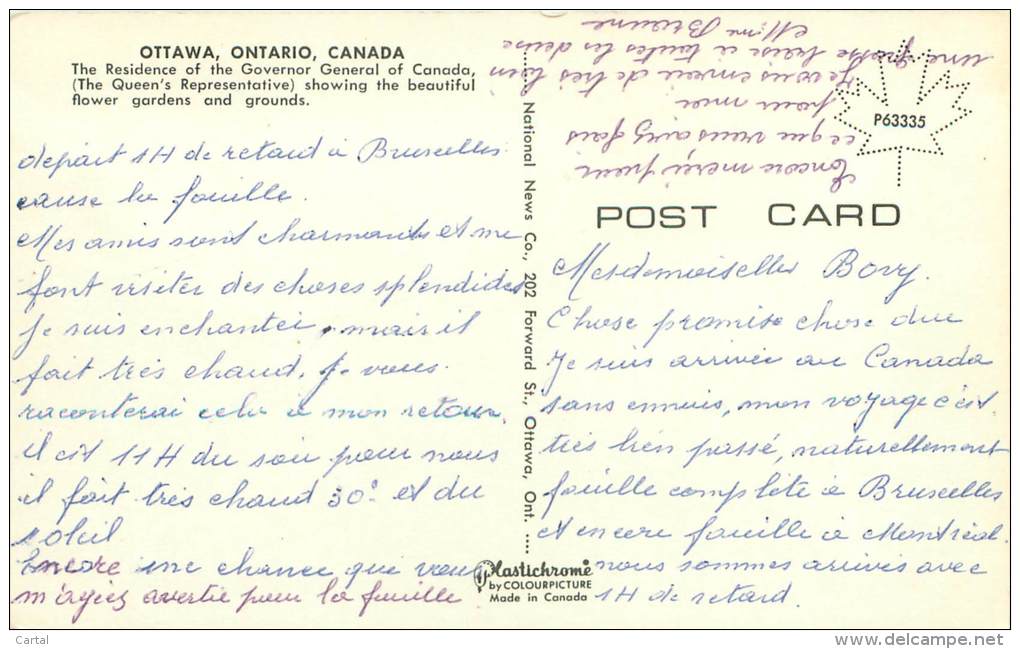 OTTAWA, ONTARIO, CANADA
The Residence of the Governor General of Canada,
(The Queen's Representative) showing the beautiful
flower gardens and grounds.
P63335
POST CARD
Mesdemoiselles Bovy.
Chose promise chose due
Je suis arrivée au Canada
sans ennuis, mon voyage c'est
très bien passé, naturellement
fouille complète à Bruxelles
et encore fouille à Montréal.
nous sommes arrivés avec
1H de retard.
départ 1H de retard à Bruxelles
cause la fouille.
Mes amis sont charmants et me
font visiter des choses splendides
Je suis enchantée, mais il
fait très chaud. Je vous
raconterai cela à mon retour.
il est 11H du soir pour nous
il fait très chaud 30° et du
soleil
Encore une chance que vous
m'ayiez avertie pour la fouille
Encore merçi pour
ce que vous avez fais
pour moi
Je vous envoie de très loin
une grosse bise à toutes les deux
Mme
National News Co., 202 Forward St., Ottawa, Ont.
Plastichrome
by COLOURPICTURE
Made in Canada
Cartal
delcampe.net